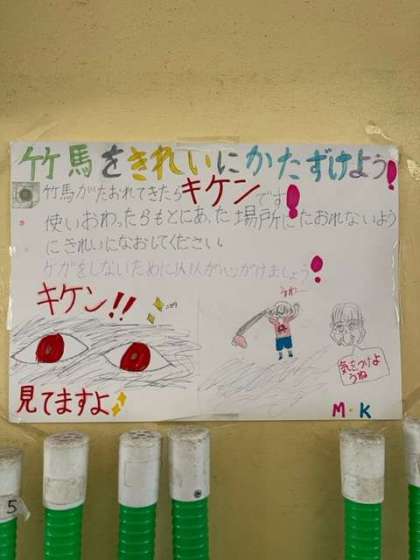 竹馬をきれいにかたずけよう!
竹馬がたおれてきたらキケンです!
使いおわったらもとにあった場所にたおれないよう
にきれいになおしてください。
ケガをしないために心がけましょう!
キケン!!
見てますよ
うわー
気をつけよ
うね
M・K
5